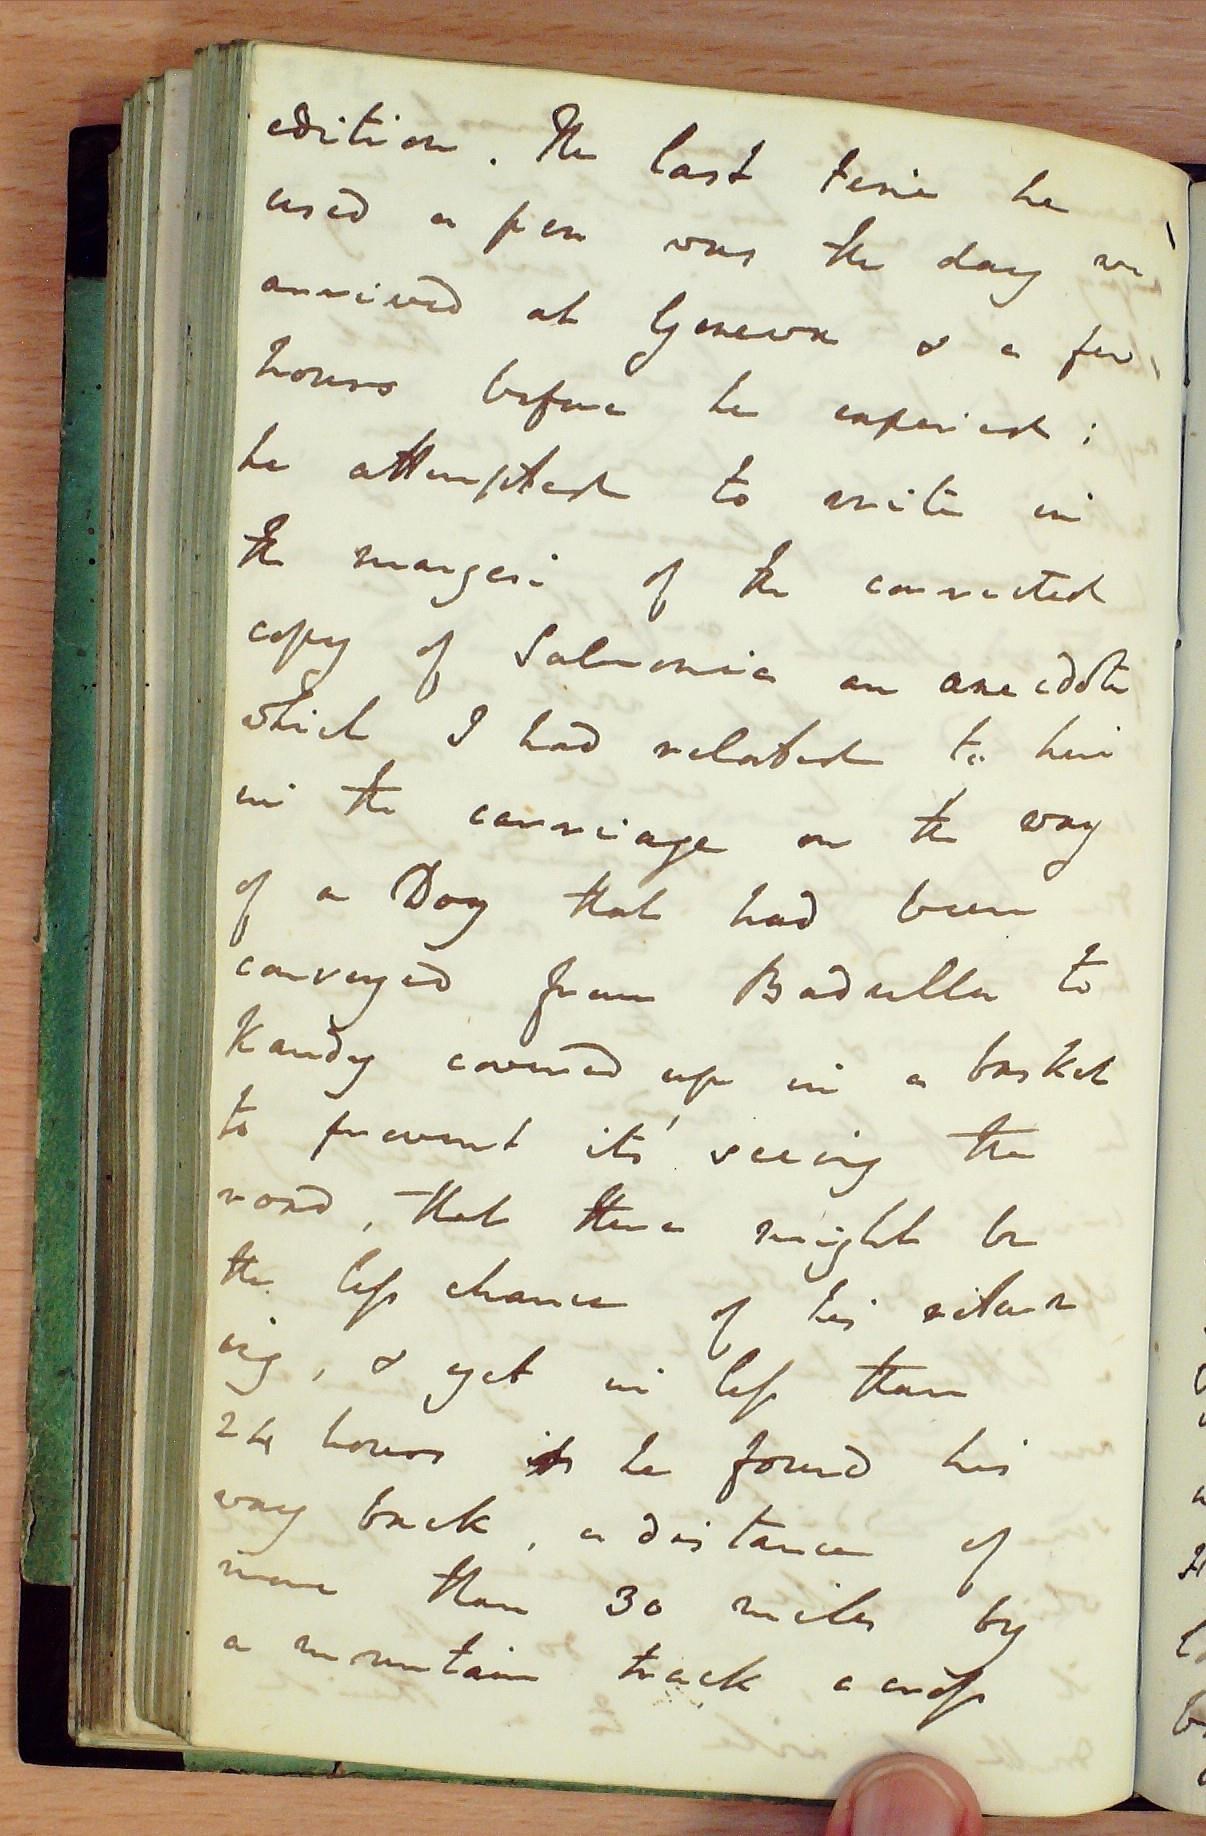 edition. The last time he
used a pen was the day we
arrived at Geneva & a few
hours before he expired;
he attempted to write in
the margin of the corrected
copy of Salmonia an anecdote
which I had related to him
in the carriage on the way
of a Dog that had been
conveyed from Badulla to
Kandy covered up in a basket
to prevent its' seeing the
road, that there might be
the less chance of his return
ing, & yet in less than
24 hours he found his
way back, a distance of
more than 30 miles by
a mountain track across